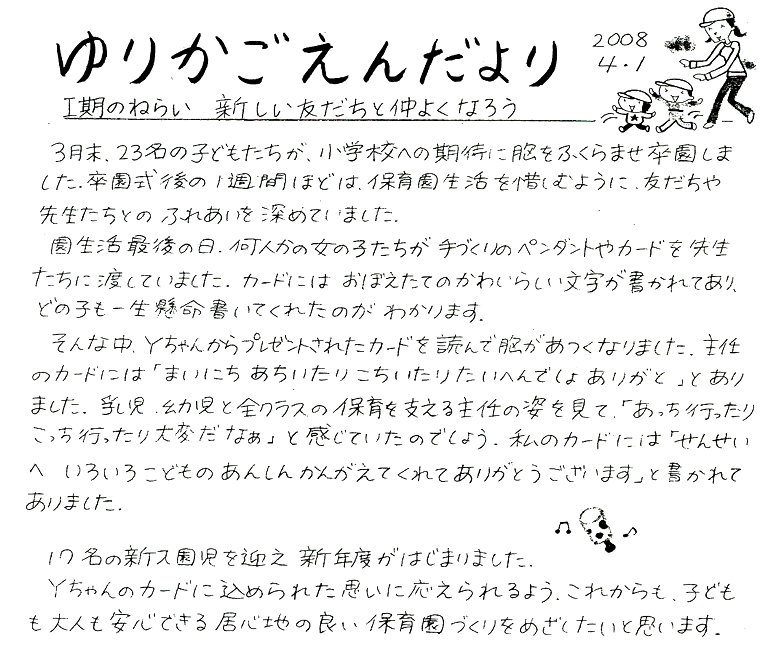 ゆりかごえんだより
2008
4.1
I期のねらい 新しい友だちと仲よくなろう
3月末、23名の子どもたちが、小学校への期待に胸をふくらませ卒園しま
した。卒園式後の1週間ほどは、保育園生活を惜しむように、友だちや
先生たちとのふれあいを深めていました。
園生活最後の日、何人かの女の子たちが手づくりのペンダントやカードを先生
たちに渡していました。カードにはおぼえたてのかわいらしい文字が書かれてあり、
どの子も一生懸命書いてくれたのがわかります。
そんな中、Yちゃんからプレゼントされたカードを読んで胸があつくなりました。主任
のカードには「まいにち あちいたり こちいたり たいへんでしょ ありがと」とあり
ました。乳児、幼児と全クラスの保育を支える主任の姿を見て、「あっち行ったり
こっち行ったり大変だなぁ」と感じていたのでしょう。私のカードには「せんせい
へ いろいろこどものあんしんかんがえてくれてありがとうございます」と書かれて
ありました。
17名の新入園児を迎え新年度がはじまりました。
Yちゃんのカードに込められた思いに応えられるよう、これからも、子ども
も大人も安心できる居心地の良い保育園づくりをめざしたいと思います。